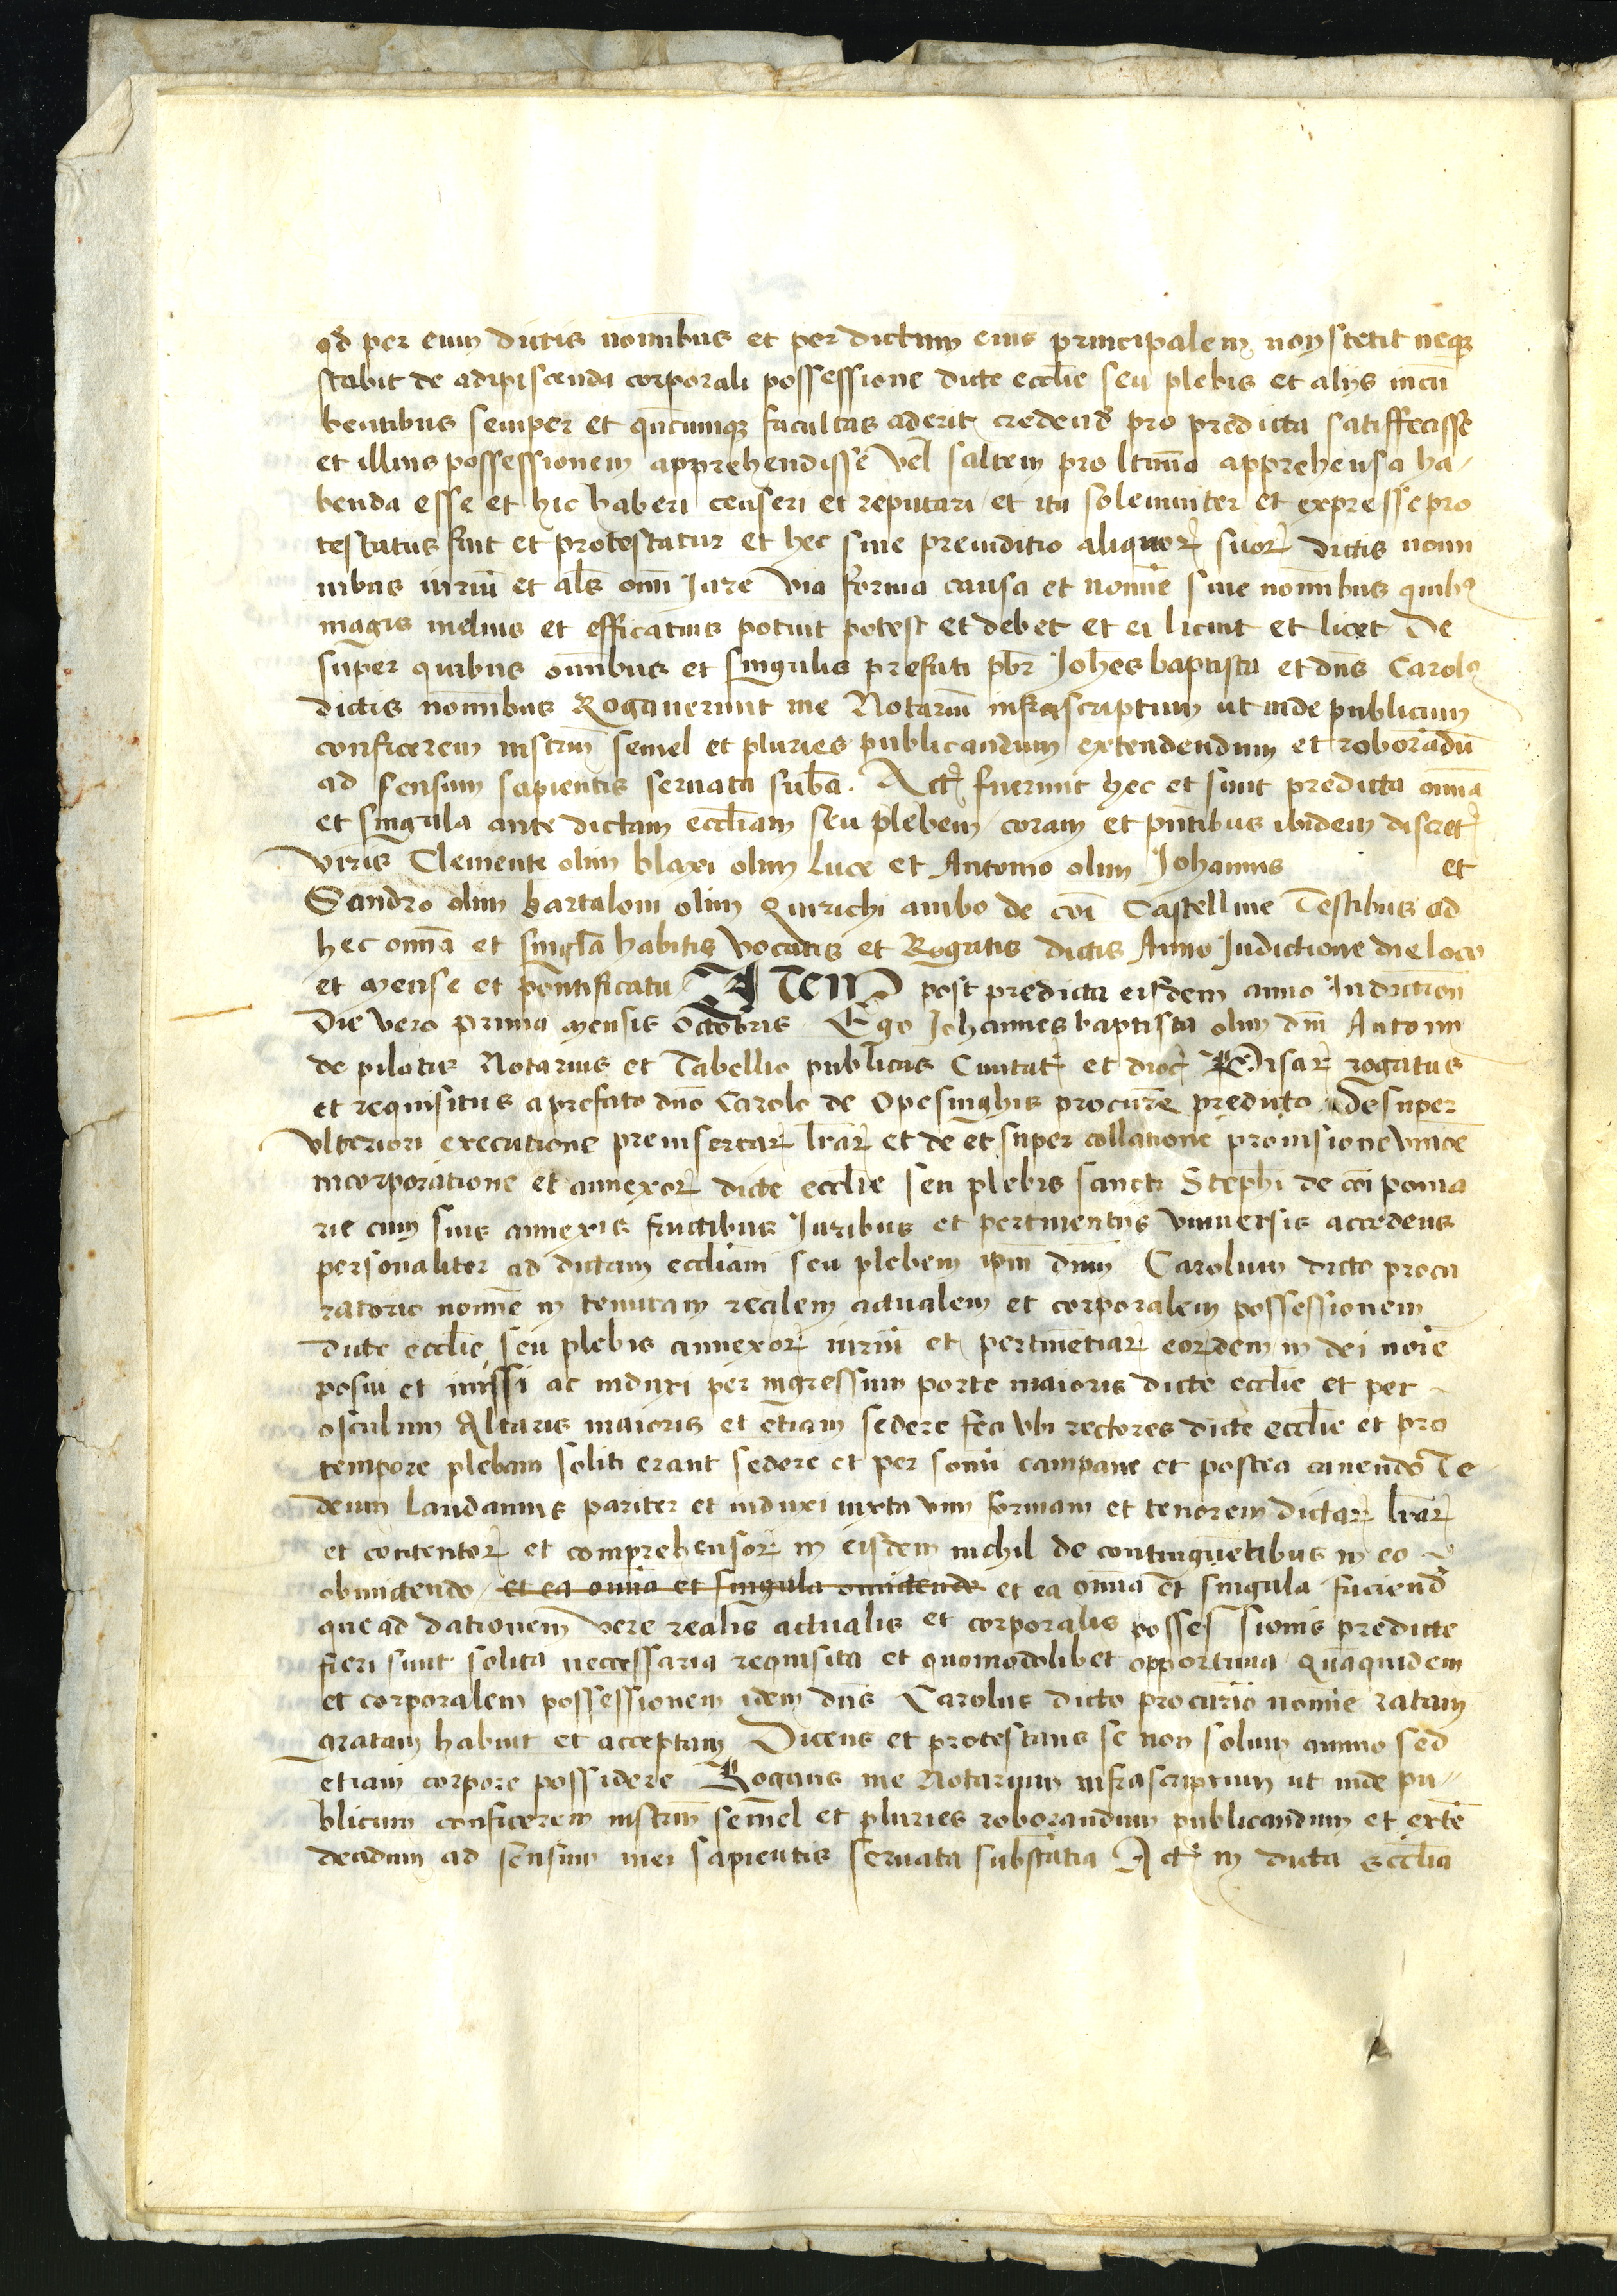 qd per eum dictis nominibus et per dictum eius principalem non stetit neqȝ
stabit de adipiscenda corporali possessione dicte ecclīe seu plebis et alijs incū
bentibus semper et qn̄cumqȝ facultas aderit credend pro predicta satiffecisse
et illius possessionem apprehendisse vel saltem pro ltīma apprehensa ha-
benda esse et hic haberi censeri et reputari et ita solemniter et expresse pro
testatus fuit et protestatur et hec sine preiuditio aliquorꝝ suorꝝ dictis nomi
nibus iuriū et als om̄i Jure via forma causa et nomīe siue nomībus quibꝰ
magis melius et efficatius potuit potest et debet et ei licuit et licet De
super quibus om̄ibus et singulis prefati pbr̄ Joh̄es baptista et dn̄s Carolꝰ
dictis nomībus Rogauerunt me Notariū infrascriptum ut inde publicum
conficerem instrm̄ semel et pluries publicandum extendendum et roboradū
ad sensum sapientis seruata sub̄a. Act fuerunt hec et sunt predicta omīa
et singula ante dictam eccl̄iam seu plebem coram et pn̄tibus ibidem discret
viris Clemente olim blaxi olim Luce et Antonio olim Johannis et
Sandro olim bartalom olim Quirichi ambo de cōi Castelline Testibus ad
hec om̄ia et singl̄a habitis vocatis et Rogatis dictis Anno Indictione die loco
et mense et pontificatu ITem post predicta eisdem anno Indiction
die vero prima mensis octobris Ego Johannes baptista olim dn̄i Antonii
de pilotis Notarius et Tabellio publicus Ciuitat et dioc Pisarꝝ rogatus
et requisitus a prefato dn̄o Carolo de Opesinghis procurē predicto De super
vlteriori executione preinsertarꝝ lr̄arꝝ et de et super collatione prouisione vnioē
incorporatione et annexorꝝ dicte ecclīe seu plebis sancti Steph̄i de cōi poma
rie cum suis annexis fructibus Juribus et pertinentijs vniuersis accedens
personaliter ad dictam eccliam seu plebem ipm̄ dnm̄ Carolum dicto procu
ratorio nomīe in tenutam realem actualem et corporalem possessionem
dicte ecclīe seu plebis annexorꝝ iuriū et pertinētiarꝝ eorꝝdem in dei noīe
posui et missi ac induxi per ingressum porte maioris dicte ecclīe et per
osculum Altaris maioris et etiam sedere feci vbi rectores dicte ecclīe et pro
tempore plebani soliti erant sedere et per sonū campane et postea canendo Te
deum laudamus pariter et induxi iuxta vim formam et tenorem dictarꝝ lr̄arꝝ
et contentorꝝ et comprehensorꝝ in eisdem nichil de contingentibus in eo
obmictendo et ea omīa et singula omictendo et ea om̄ia et singula faciend
que ad dationem vere realis actualis et corporalis possessionis predicte
fieri sunt solita neccessaria requisita et quomodolibet opportuna Quāquidem
et corporalem possessionem idem dn̄s Carolus dicto procur̄io nomīe ratam
gratam habuit et acceptam Dicens et protestans se non solum animo sed
etiam corpore possidere Rogans me Notarium infrascriptum ut inde pu-
blicum conficerem instrm̄ semel et pluries roborandum publicandum et extē
dendum ad sensum mei sapientis seruata substātia Act in dicta eccl̄ia